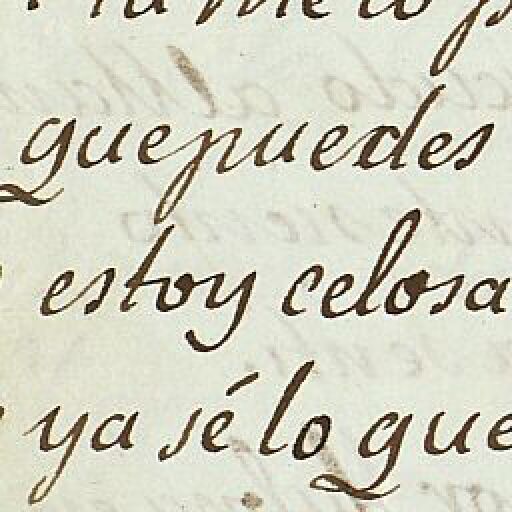 me lo p
que puedes
estoy celosa
ya sé lo que